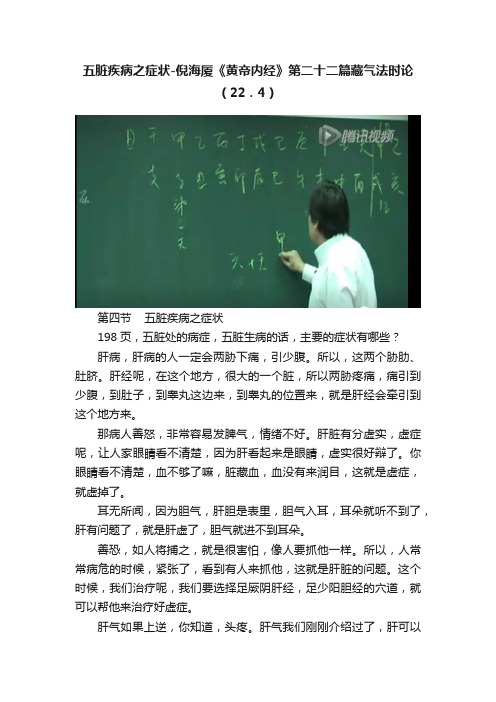 五脏疾病之症状-倪海厦《黄帝内经》第二十二篇藏气法时论
（22．4）
腾讯视频
日 干 甲 乙 丙 丁 戊 己 庚
支 子 丑 寅 卯 辰 巳 午 未 申 酉 戌 亥
第
一
天
甲
六十天
第四节 五脏疾病之症状
198页，五脏处的病症，五脏生病的话，主要的症状有哪些？
肝病，肝病的人一定会两胁下痛，引少腹。所以，这两个胁肋、
肚脐。肝经呢，在这个地方，很大的一个脏，所以两胁疼痛，痛引到
少腹，到肚子，到睾丸这边来，到睾丸的位置来，就是肝经会牵引到
这个地方来。
那病人善怒，非常容易发脾气，情绪不好。肝脏有分虚实，虚症
呢，让人家眼睛看不清楚，因为肝看起来是眼睛，虚实很好辩了。你
眼睛看不清楚，血不够了嘛，脏藏血，血没有来润目，这就是虚症，
就虚掉了。
耳无所闻，因为胆气，肝胆是表里，胆气入耳，耳朵就听不到了，
肝有问题了，就是肝虚了，胆气就进不到耳朵。
善恐，如人将捕之，就是很害怕，像人要抓他一样。所以，人常
常病危的时候，紧张了，看到有人来抓他，这就是肝脏的问题。这个
时候，我们治疗呢，我们要选择足厥阴肝经，足少阳胆经的穴道，就
可以帮他来治疗好虚症。
肝气如果上逆，你知道，头疼。肝气我们刚刚介绍过了，肝可以